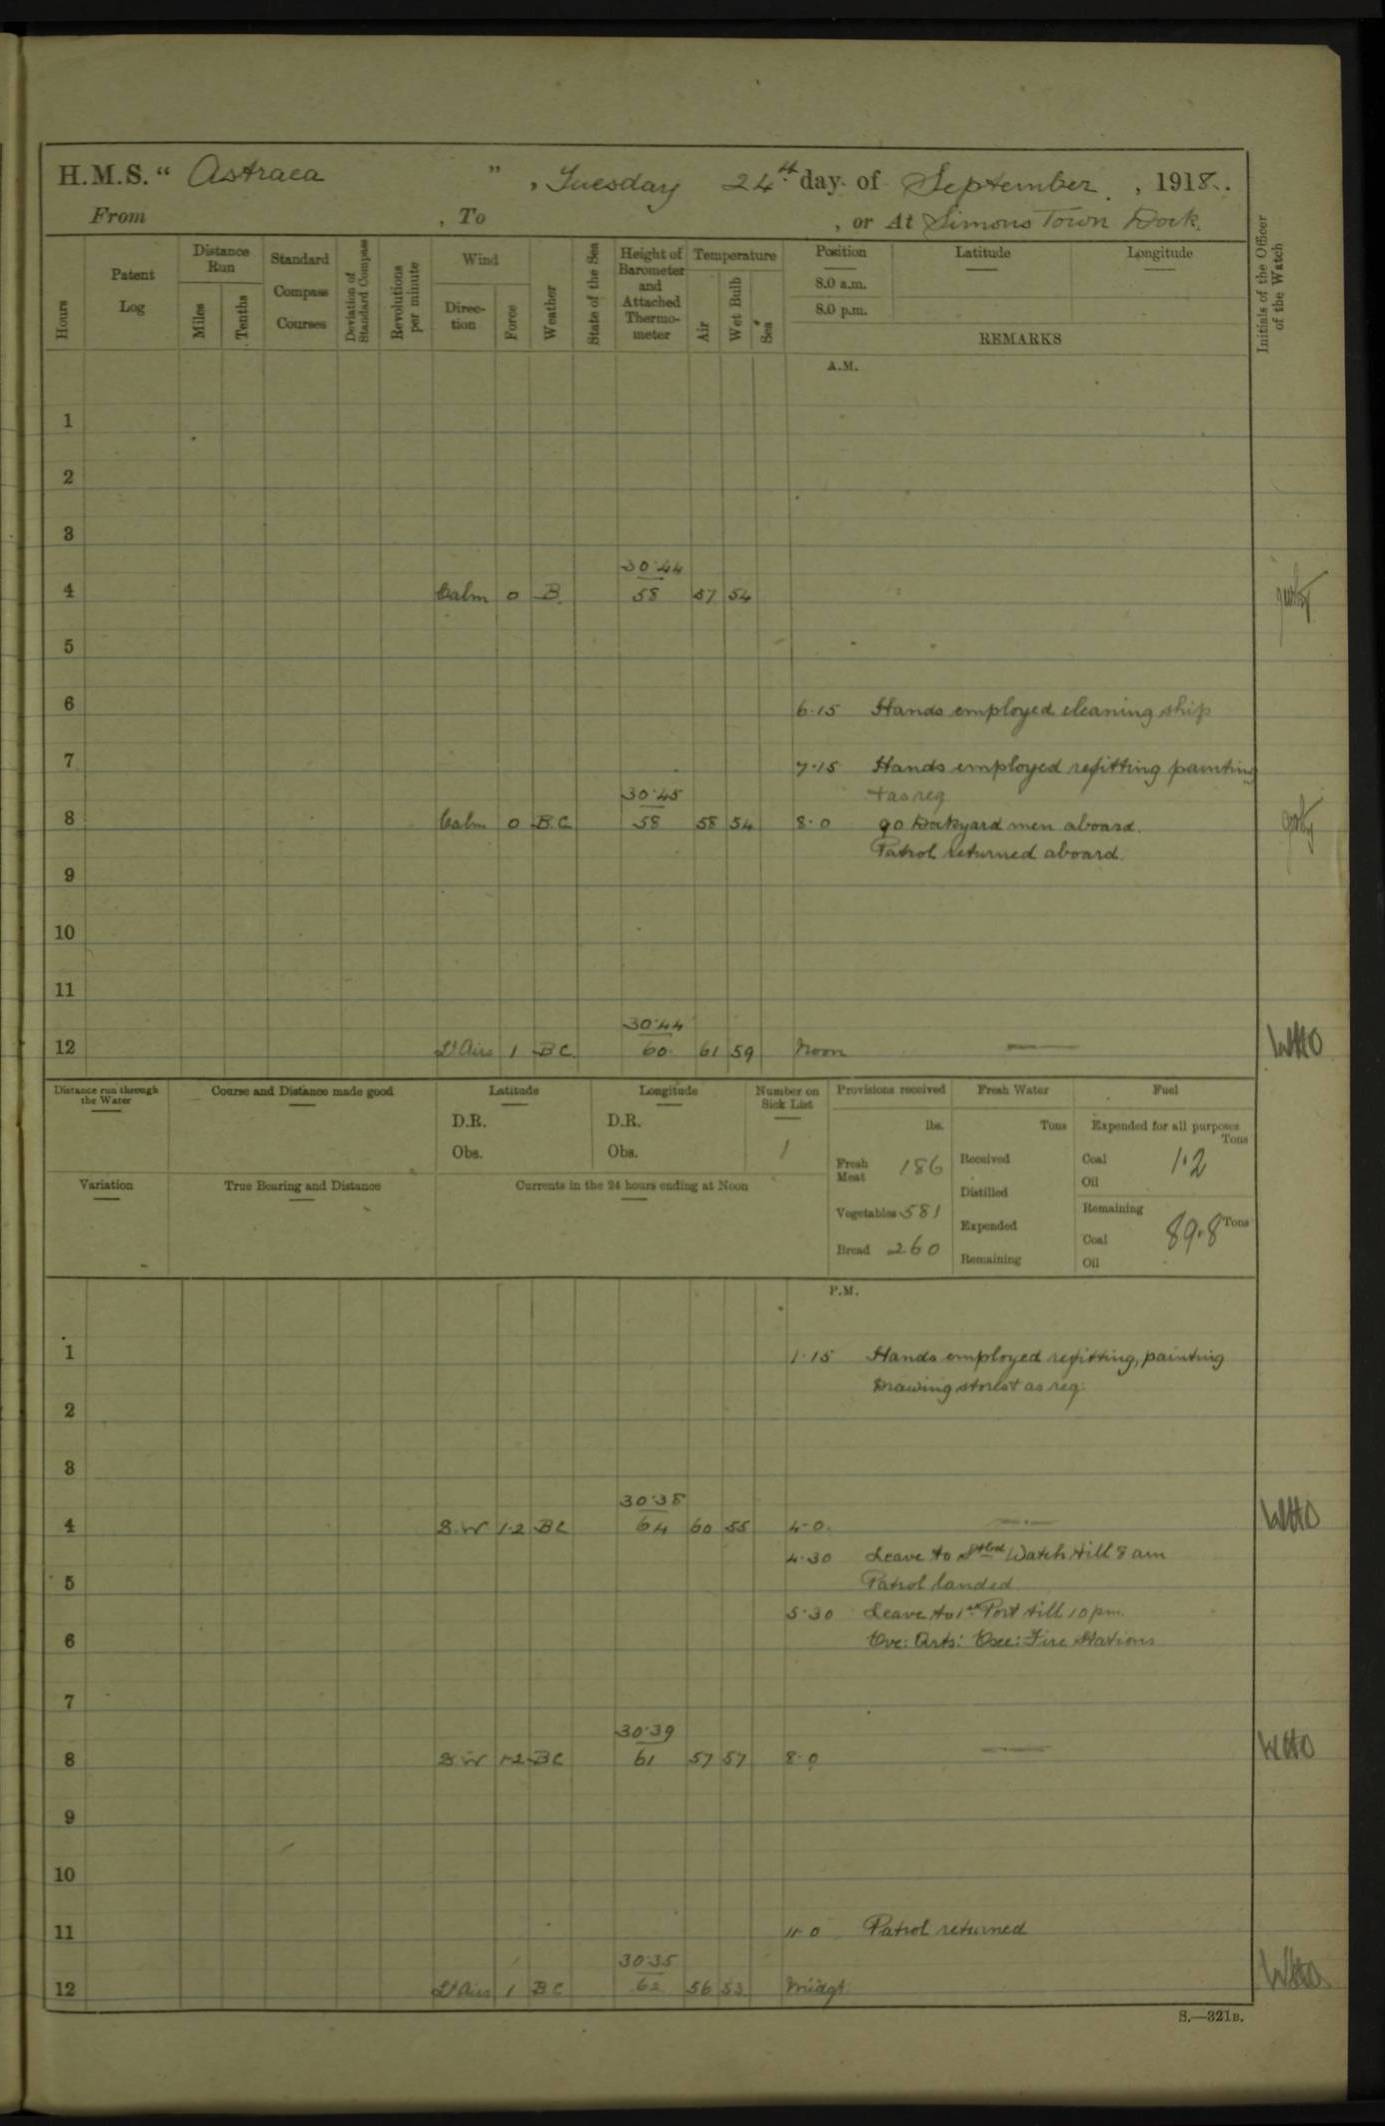 H.M.S. “ Astraea ”, Tuesday 24th day of September, 1918.
From , To , or At Simons Town Dock.
Hours
Patent Log
Distance Run
Miles
Tenths
Standard Compass Courses
Deviation of Standard Compass
Revolutions per minute
Wind
Direction
Force
Weather
State of the Sea
Height of Barometer and Attached Thermometer
Temperature
Air
Wet Bulb
Sea
Position
8.0 a.m.
8.0 p.m.
Latitude
Longitude
REMARKS
Initials of the Officer of the Watch
A.M.
1
2
3
30.44
4 Calm 0 B. 58 57 54
5
6 6.15 Hands employed cleaning ship
7 7.15 Hands employed refitting painting
30.45 + as req
8 Calm 0 B.C. 58 58 54 8.0 90 Dockyard men aboard.
Patrol returned aboard.
9
10
11
30.44
12 Lt Airs 1 BC 60 61 59 Noon WHO
Distance run through the Water
Course and Distance made good
Latitude
D.R.
Obs.
Longitude
D.R.
Obs.
Number on Sick List
1
Provisions received
lbs.
Fresh Meat 186
Vegetables 581
Bread 260
Fresh Water
Tons
Received
Distilled
Expended
Remaining
Fuel
Expended for all purposes
Tons
Coal 1.2
Oil
Remaining
Coal 89.8 Tons
Oil
Variation
True Bearing and Distance
Currents in the 24 hours ending at Noon
P.M.
1 1.15 Hands employed refitting, painting
Drawing stores + as req.
2
3
30.38
4 S.W 1-2 BC 64 60 55 4.0. WHO
4.30 Leave to Stbd Watch till 8 am
5 Patrol landed
5.30 Leave to 1st Port till 10 pm.
6 Eve: Qrts: Exe: Fire Stations
7
30.39
8 S.W 1-2 BC 61 57 57 8.0 WHO
9
10
11 11.0 Patrol returned
30.35
12 Lt Airs 1 BC 62 56 53 Midgt WHO
S.—321B.